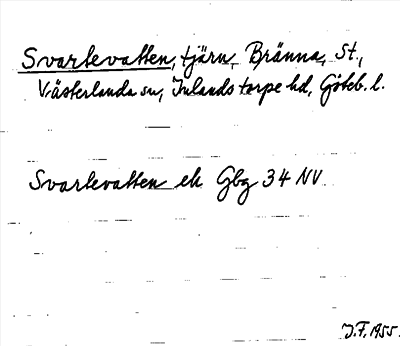 Svartevatten, tjärn, Bränna, St.,
Västerlanda sn, Inlands torpe hd, Göteb. l.
Svartevatten ek Gbg 34 NV
J.F. 1955.